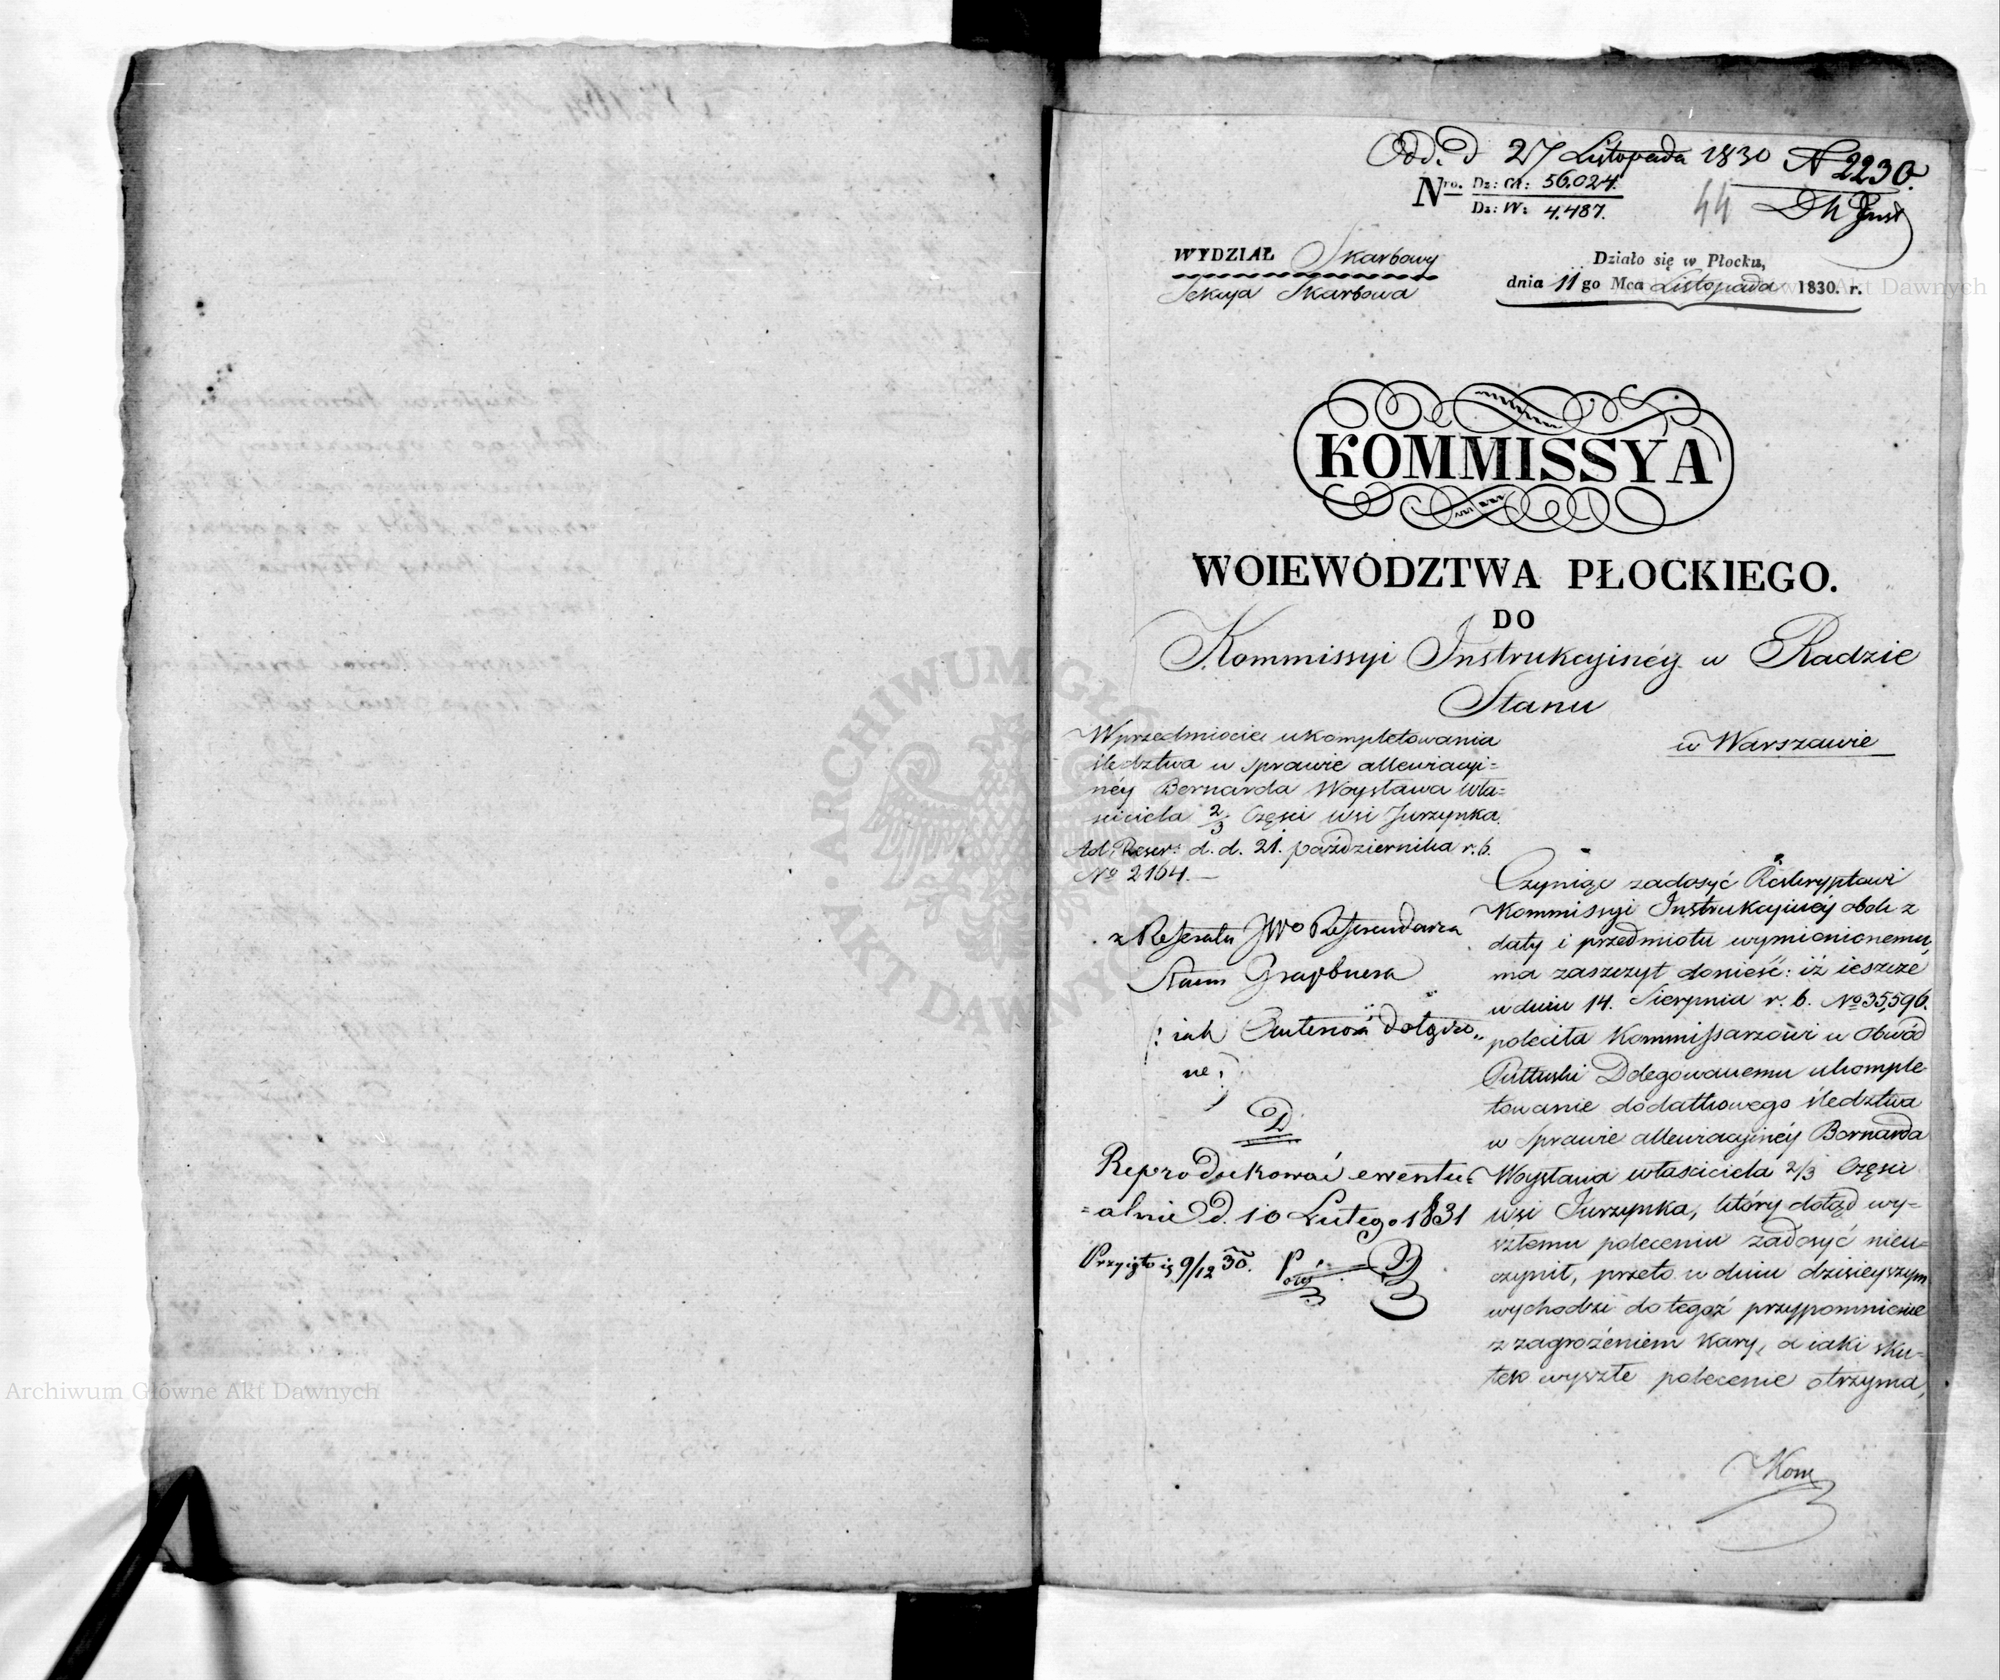 Odd. d 27 Listopada 1830 N 2230.
Nro. Dz: Gł: 56,024.
Dz: W: 4.487.
44
WYDZIAŁ Skarbowy
Sekcya Skarbowa
Działo się w Płocku,
dnia 11 go Mca Listopada 1830. r.
KOMMISSYA
WOIEWÓDZTWA PŁOCKIEGO.
DO
Kommissyi Instrukcyinéy w Radzie
Stanu
w Warszawie
W przedmiocie ukompletowania
śledztwa w sprawie allewiacyi=
néy Bernarda Woysława wła=
ściciela 2/3 Części wsi Jurzynka.
Ad Reser: d. d. 21. października r. b.
No 2164.—
z Referatu JWo Referendarza
Stanu
/: iak dołączo„
ne :/
D
Reprodukować ewentu=
=alnie d. 10 Lutego 1831
Przyięto ią 9/12 30.
Czyniąc zadosyć Reskryptowi
Kommissyi Instrukcyinéy obok z
daty i przedmiotu wymienionemu,
ma zaszczyt donieść: iż ieszcze
w dniu 14. Sierpnia r. b. No 35,596.
poleciła Kommissarzowi w Obwód
Pułtuski Delegowanemu ukomple-
towanie dodatkowego śledztwa
w sprawie allewiacyinéy Bernarda
Woysława właściciela 2/3 Części
wsi Jurzynka, który dotąd wy=
szłemu poleceniu zadosyć nieu=
czynił, przeto w dniu dzisieyszym
wychodzi do tegoż przypomnienie
z zagrożeniem kary, a iaki sku=
tek wyszłe polecenie otrzyma,
Kom
ARCHIWUM GŁÓWNE AKT DAWNYCH
Archiwum Główne Akt Dawnych